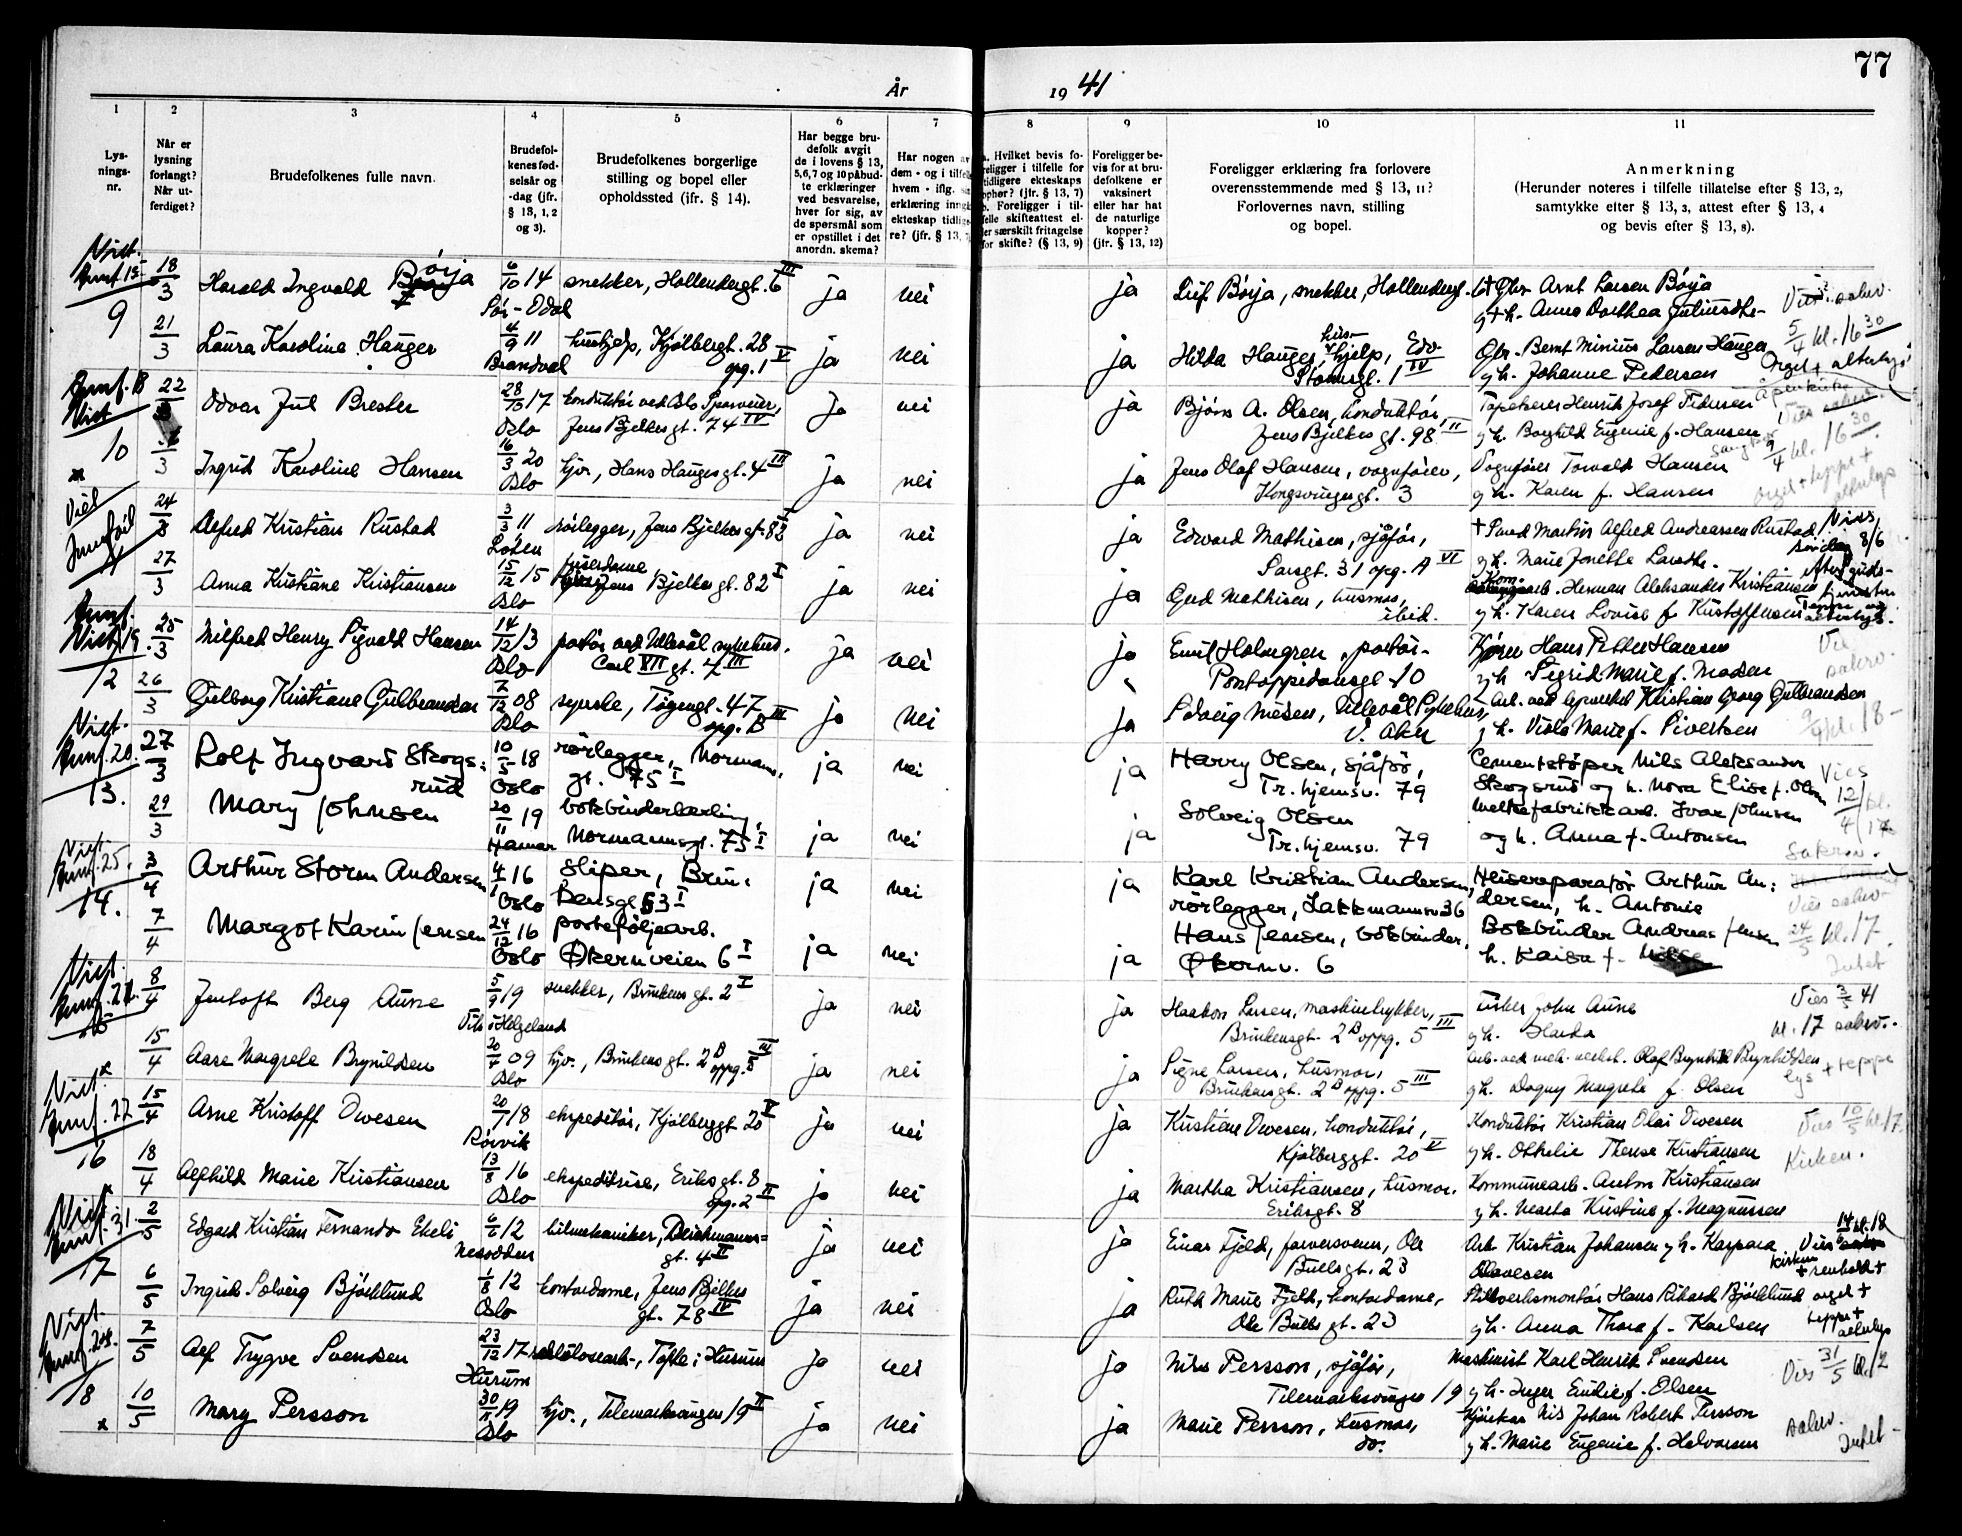 77
År 1941
1 2 3 4 5 6 7 8 9 10 11
Lys-
nings-
nr.
Når er
lysning
forlangt?
Når ut-
ferdiget?
Brudefolkenes fulle navn.
Brudefol-
kenes fød-
selsår og
-dag (jfr.
§ 13, 1, 2
og 3).
Brudefolkenes borgerlige
stilling og bopel eller
opholdssted (jfr. § 14).
Har begge bru-
defolk avgit
de i lovens § 13,
5,6,7 og 10 påbud-
te erklæringer
ved besvarelse,
hver for sig, av
de spørsmål som
er opstillet i det
anordn. skema?
Har nogen av
dem - og i tilfelle
hvem - iflg.
erklæring inngått
ekteskap tidlige-
re? (jfr. § 13,
a. Hvilket bevis fo-
religger i tilfelle for
tidligere ekteskaps
ophør? (jfr. § 13, 7)
b. Foreligger i til-
felle skifteattest el-
ler særskilt fritagelse
for skifte? (§ 13, 9)
Foreligger be-
vis for at bru-
defolkene er
vaksinert
eller har hat
de naturlige
kopper?
(jfr. § 13, 12)
Foreligger erklæring fra forlovere
overensstemmende med § 13, 11?
Forlovernes navn, stilling
og bopel.
Anmerkning
(Herunder noteres i tilfelle tillatelse efter § 13, 2,
samtykke efter § 13, 3, attest efter § 13, 4
og bevis efter § 13, 8).
Viet.
9 18/3 Harald Ingvald Børja 6/10 14 snekker, Hollendergt. 6 III ja nei ja Leif Børja, snekker, Hollendergt. 6 Gbr. Arnt Larsen Børja
Sør-Odal g + h. Anna Dorthea Juliusdtr. Vies sakrv.
21/3 Laura Karoline Hauger 4/9 11 hushjelp, Kjølbergt. 28 V ja nei ja Hilda Hauger, hushjelp, Edv. Gbr. Bernt Minius Larsen Hauger 5/4 kl. 16 30
Brandval opg. 1 Stormsgt. 1 IV g h. Johanne Pedersen Orgel + alterlys
10 22/3 Odvar Jul Brester 28/10 17 konduktør ved Oslo Sporveier, ja nei ja Bjørn A. Olsen, konduktør, Tapetserer Henrik Josef Pedersen
Oslo Jens Bjelkes gt. 74 IV Jens Bjelkes gt. 98 III g h. Borghild Eugenie f. Hansen
Ingrid Karoline Hansen 16/3 20 hjv., Hans Hauges gt. 4 III ja nei ja Jens Olaf Hansen, vognfører, Vognfører Torvald Hansen 9/4 kl. 16 30
Oslo Kongsvingergt. 3 g h. Karen f. Hansen orgel + teppe +
alterlys
Viet
11 24/3 Alfred Kristian Rustad 3/3 11 rørlegger, Jens Bjelkes gt. 82 I ja nei ja Edvard Mathisen, sjåfør, + Smed Martin Alfred Andreassen Rustad. Vies
Løten Sarsgt. 31 opg. A VI g h. Marie Jonette Larsdtr. søndag 8/6
27/3 Anna Kristiane Kristiansen 15/12 15 Jens Bjelkes gt. 82 I ja nei ja Gerd Mathisen, husmor, Kom. arb. Herman Aleksander Kristiansen
Oslo ibid. g h. Karen Lovise f. Kristoffersen
12 25/3 Milfred Henry Sigvald Hansen 14/12 13 portør ved Ullevål sykehus, ja nei ja Emil Holmgren, portør Kjører Hans Petter Hansen
Oslo Carl VII gt. 4 III Pontoppidansgt. 10 g h Sigrid Marie f. Madsen sakrv.
26/3 Gulborg Kristiane Gulbrandsen 7/12 08 syerske, Tøyengt. 47 III ja nei ja Solveig Nielsen, Ullevål Sykehus, Arb. ved Kristian Georg Gulbrandsen
Oslo opg. B V. Aker g h. Viola Marie f. Sivertsen kl. 18
Viet.
13. 27/3 Rolf Ingvard Skogs- 10/5 18 rørlegger, Normanns- ja nei ja Harry Olsen, sjåfør, Cementstøper Nils Aleksander
rud Oslo gt. 75 I Tr.hjemsv. 79 Skogsrud og h. Nora Elise f. Olsen Vies
29/3 Mary Johnsen 20/11 19 bokbinderlærling, ja nei ja Solveig Olsen Melkefabrikkarb. Ivar Johnsen 12/4 kl. 17
Hamar Normannsgt. 75 I Tr.hjemsv. 79 og h. Anna f. Antonsen Sakrv.
Viet
14. 3/4 Arthur Storm Andersen 4/1 16 sliper, Brin- ja nei ja Karl Kristian Andersen, Heisereparatør Arthur An-
Oslo kensgt. 53 I rørlegger, Lakkmannsv. 36 dersen, h. Antonie Vies sakrv.
7/4 Margot Karin Jensen 24/12 16 porteføljearb. ja nei ja Hans Jensen, bokbinder, Bokbinder Andreas Jensen 24/5 kl. 17.
Oslo Økernveien 6 I Økernv. 6 h. Kaisa f. Intet
Viet.
15 8/4 Jentoft Berg Aune 5/9 19 snekker, Brinkens gt. 2 I ja nei ja Haakon Larsen, maskintrykker, Fisker John Aune Vies 3/5 41
Vik i Helgeland Brinkensgt. 2 B oppg. 5 III g h. Harda kl. 17 sakrv.
15/4 Aase Margrete Brynildsen 20/4 09 hjv., Brinkens gt. 2 B oppg. 5 III ja nei ja Signe Larsen, husmor, Arb. ved mek. verkst. Olaf Brynhild Brynhildsen
Oslo Brinkens gt. 2 B oppg. 5 III g h. Dagny Margrete f. Olsen lys + teppe
Viet
16 15/4 Arne Kristoff Owesen 20/1 18 ekspeditør, Kjølberggt. 20 V ja nei ja Kristian Owesen, konduktør, Konduktør Kristian Olai Owesen Vies 10/5 kl. 17.
Rørvik Kjølberggt. 20 V g h. Othelie Therese Kristiansen Kirken.
18/4 Alfhild Marie Kristiansen 13/8 16 ekspeditrise, Eriks gt. 8 ja nei ja Martha Kristiansen, husmor. Kommunearb. Anton Kristiansen
Oslo Opg. 2 II Eriksgt. 8 g h. Marta Kristine f. Magnussen
Viet
17 2/5 Edgard Kristian Fernando Ekeli 6/6 12 bilmekaniker, Deichmanns- ja nei ja Einar Fjeld, farversvenn, Ole Arb. Kristian Johansen g h. Kaspara Vies 14/6 kl. 18
Nesodden gt. 4 II Bullsgt. 23 Olavesen kirken + renhold +
6/5 Ingrid Solveig Bjørklund 1/8 12 kontordame, Jens Bjelkes ja nei ja Ruth Marie Fjeld, kontordame, Hans Rikard Bjørklund orgel +
Oslo gt. 78 IV Ole Bulls gt. 23 g h. Anna Thora f. Karlsen teppe +
alterlys
Viet.
18 7/5 Alf Trygve Svendsen 23/12 17 cellulosearb., Tofte i Hurum ja nei ja Nils Persson, sjåfør, Maskinist Karl Henrik Svendsen Vies 31/5 kl. 12
Hurum Telemarksvingen 19 g h. Inger Emilie f. Olsen
10/5 Mary Persson 30/11 19 hjv., Telemarksvingen 19 II ja nei ja Marie Persson, husmor, Nils Johan Robert Persson sakrv.
Oslo do. g h. Marie Eugenie f. Halvorsen Intet